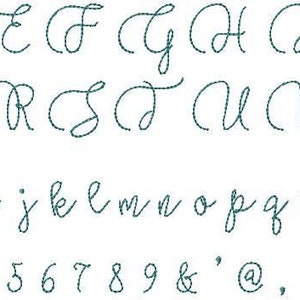 E F G H
R S T U
j k l m n o p q
5 6 7 8 9 & ' @ ,